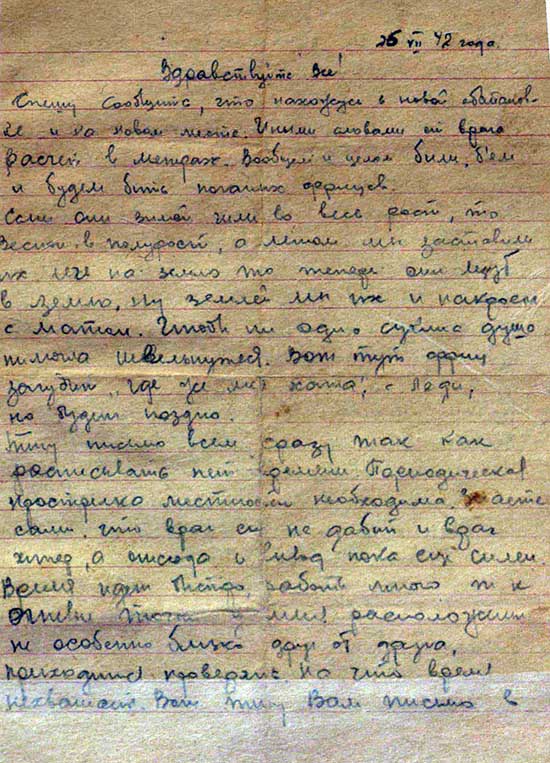 25 VII 42 года.
Здравствуйте Все!
Спешу сообщить, что нахожусь в новой обстанов-
ке и на новом месте. Иными словами от врага
расчет в метрах. Вообщем и целом били, бьем
и будем бить поганых фрицев.
Если они зимой шли во весь рост, то
весной в полурост, а летом мы заставили
их лечь на землю то теперь они лезут
в землю, ну землей мы их и накроем
с матом. Чтобы ни одна сучья душа
не шевельнулся. Вот тут фриц
загубит "где же моя хата", с Леди,
но будет поздно.
Пишу письмо всем сразу так как
расписывать нет времени. Периодическая
прострелка местности необходима. Знаете
сами что враг ещ не добит и враг
хитер, а отсюда и вывод пока ещ силен
Время идет быстро, работы много т. к
огневые точки у меня расположены
не особенно близко друг от друга,
приходится проверять на что время
нехватает. Вот пишу Вам письмо в